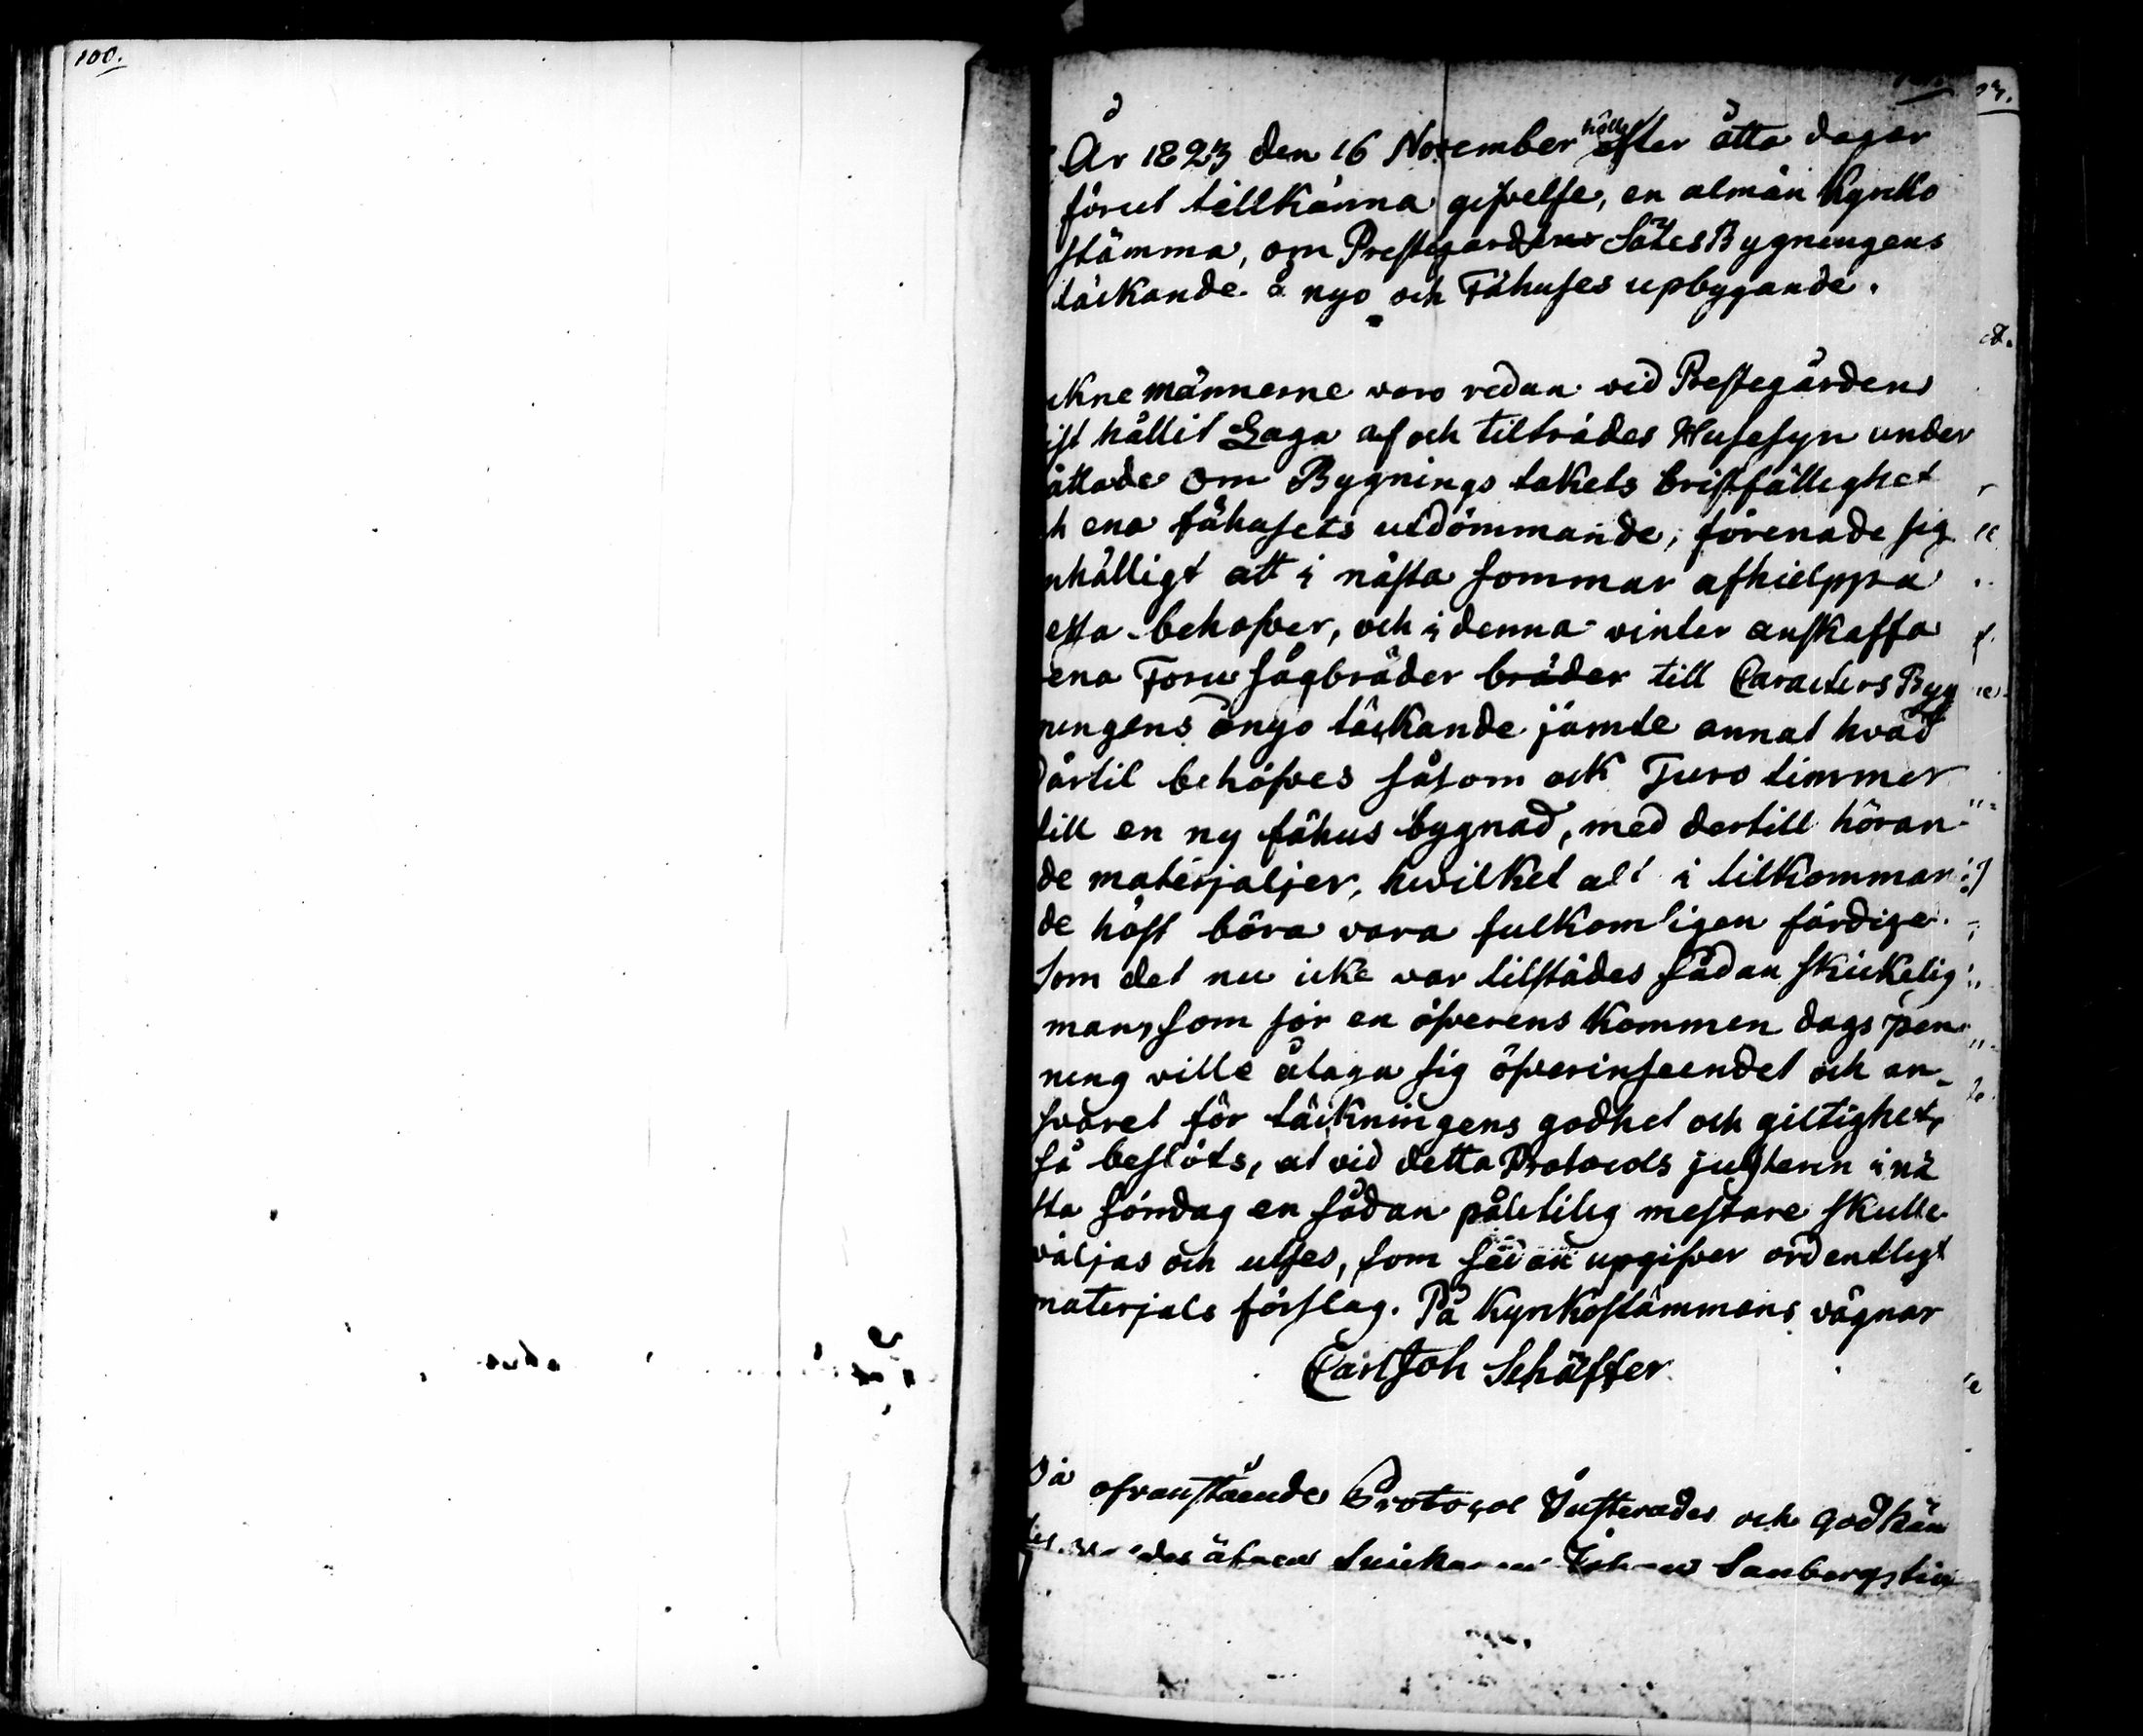 100.
År 1823 den 16 November hölls efter åtta dagar
förut tillkänna gifvelse, en almän Kyrko
stämma, om Prestegårdens SätesBygningens
täckande å nyo och Fähuses upbygande.
ckne männerne voro redan vid Prestegårdens
ist hållit Laga af och tilträdes Husesyn under
ättade om Bygnings takets bristfällighet
h ena fähusets utdömmande, förenade sig
nhälligt att i nästa sommar afhielppa
essa behofver, och i denna vinter anskaffa
ena Foru sågbräder bräder till Caracters Byg
ningens ånyo täckande jämte annat hvad
därtil behöfves såsom ock Furo timmer
till en ny fähus bygnad, med dertill höran-
de materjaljer, hwilket alt i tilkomman
de höst böra vara fulkomligen färdige.
Som det nu icke var tilstädes sådan skickelig
man, som för en öfverens kommen dags pen
ning ville ålaga sig öfverinseendet och an-
svaret för täckningens godhet och giltighet,
så beslöts, at vid detta Protocols justeren i nä
sta söndag en sådan pålitlig mestare skulle
väljas och utses, som sedan upgifver ordentligt
materjals förslag. På Kyrkostämmans vägnar
Carl Joh Schäffer
Då ofvanstående Protocol Justerades och godkän
des åtaga Snickaren Johan Sanberg